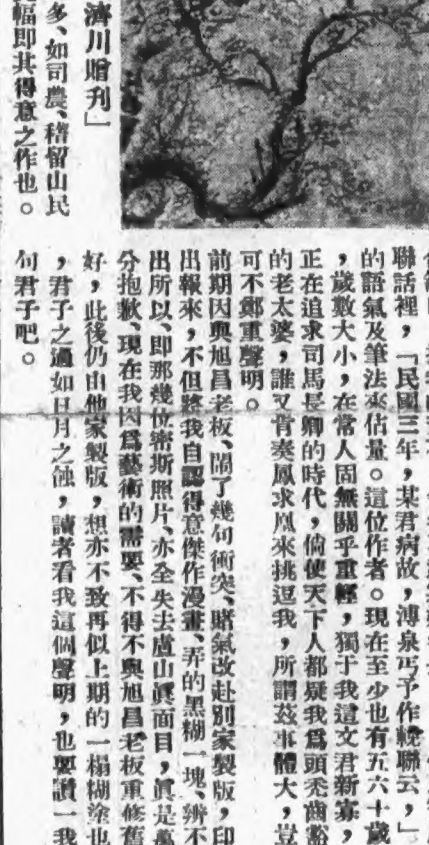 聯話裡，「民國三年，某君病故，溥泉丐予作輓聯云，」
的語氣及筆法來估量。這位作者。現在至少也有五六十歲
，歲數大小，在常人固無關乎重輕，獨于我這文君新寡，
正在追求司馬長卿的時代，倘使天下人都疑我爲頭禿齒豁
的老太婆，誰又肯奏鳳求凰來挑逗我，所謂茲事體大，豈
可不鄭重聲明。
前期因與旭昌老板、鬧了幾句衝突、賭氣改赴別家製版，印
出報來，不但將我自認得意傑作漫畫、弄的黑糊一塊、辨不
出所以、即那幾位密斯照片、亦全失去廬山眞面目，眞是萬
分抱歉、現在我因爲藝術的需要、不得不與旭昌老板重修舊
好，此後仍由他家製版，想亦不致再似上期的一榻糊塗也
，君子之過如日月之蝕，讀者看我這個聲明，也要讚一我
句君子吧。
濟川贈刊」
多、如司農、稽留山民
幅即其得意之作也。